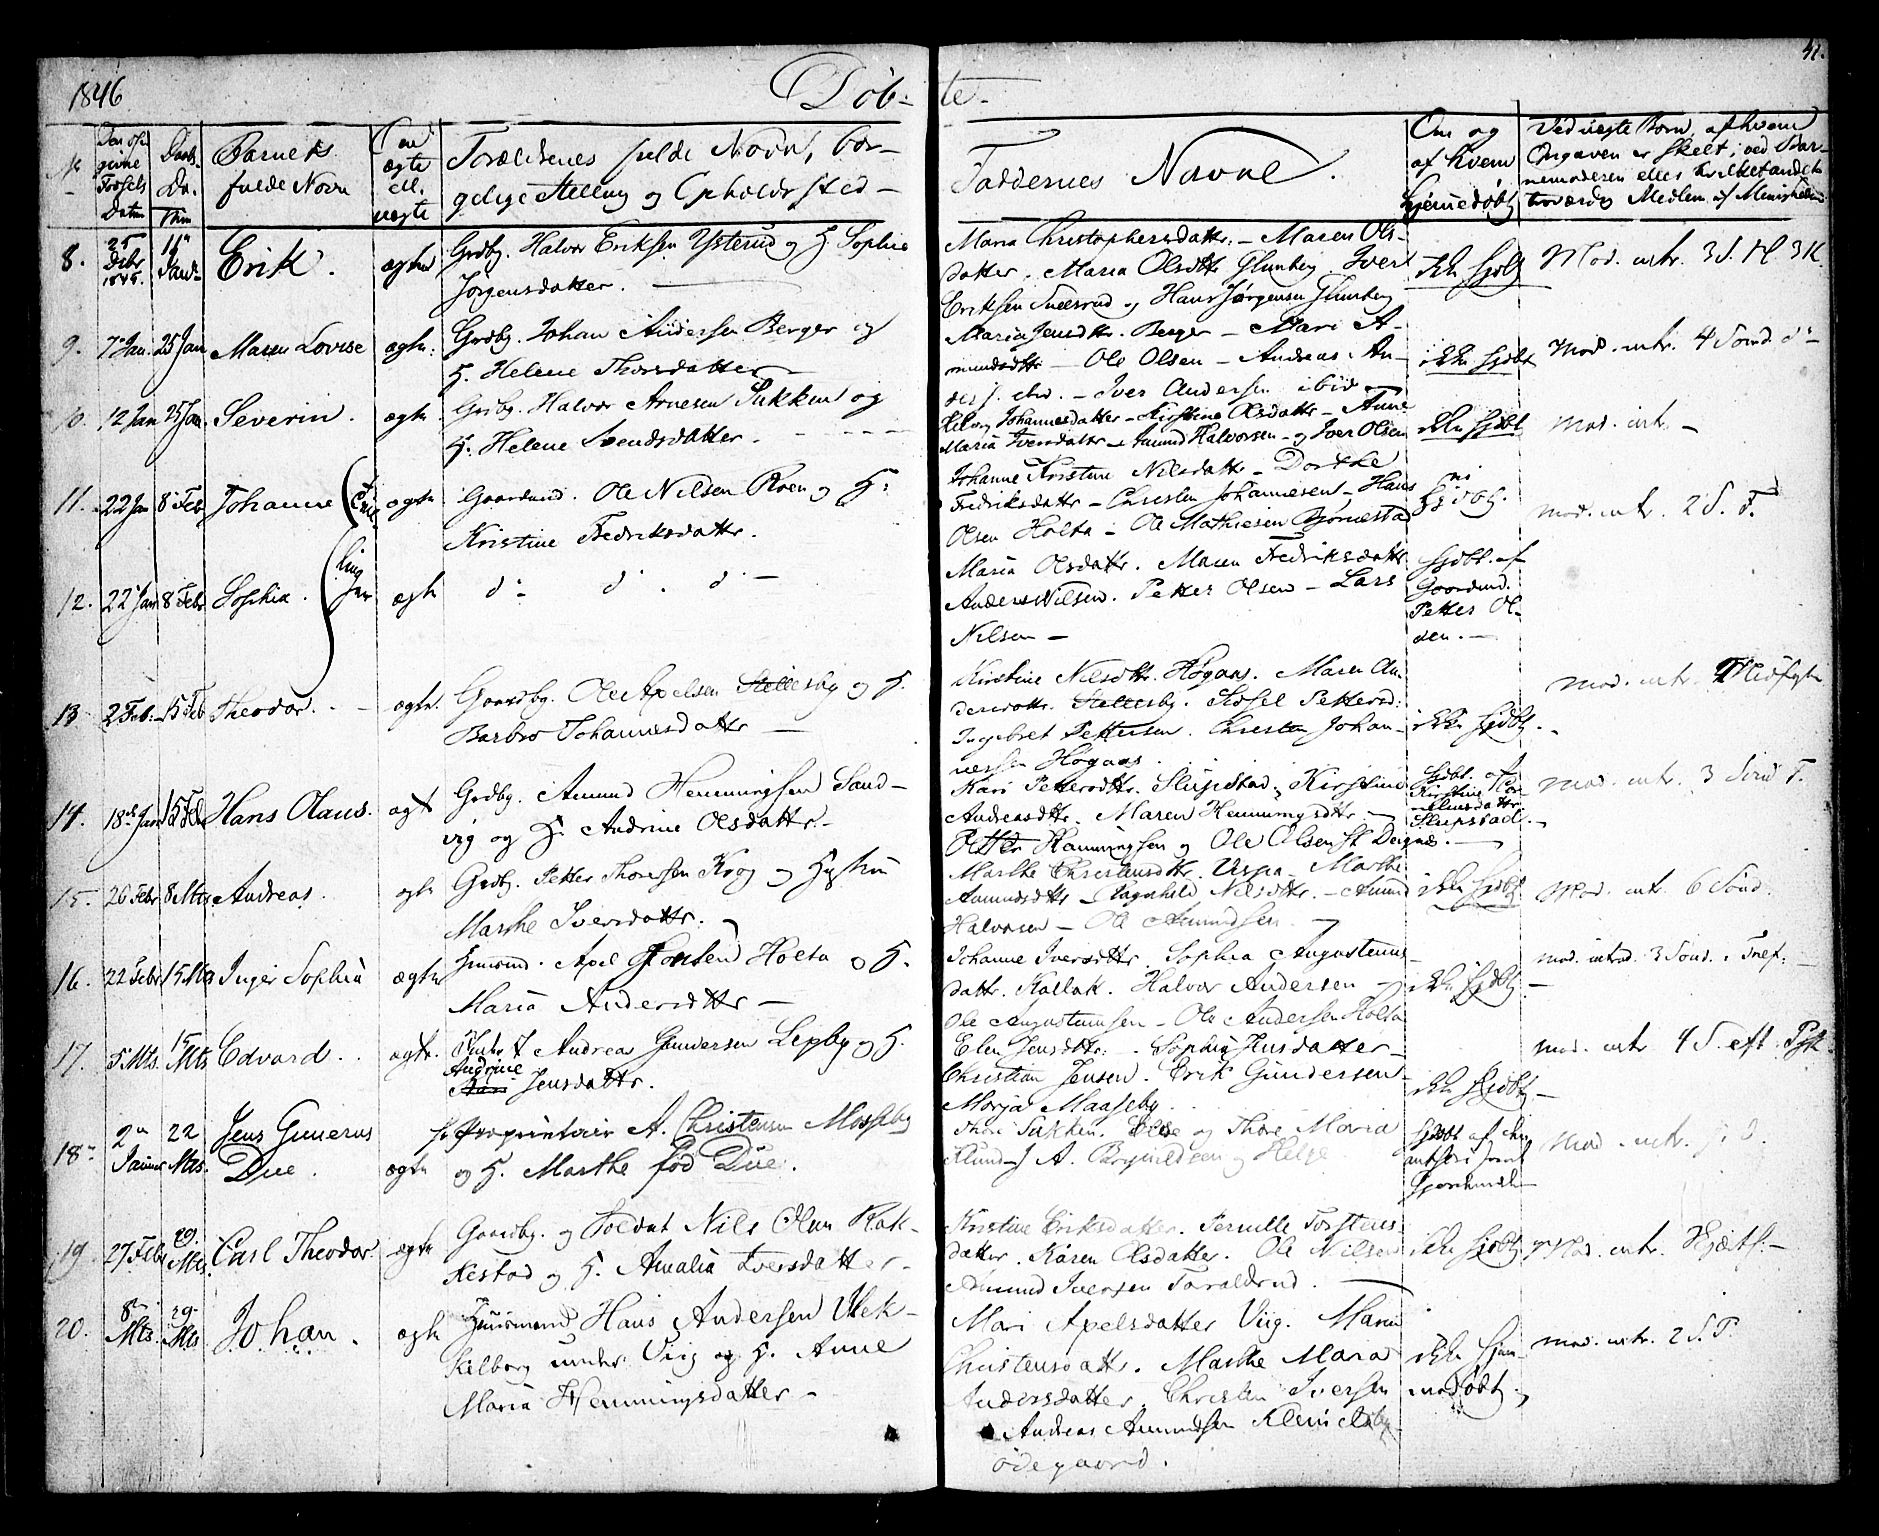 1846 Døb- te- 41.
No Den opgivne Fødsels Datum
Daabs Da. Thm
Barnets fulde Navn
Om ægte ell. uægte
Forældrenes fulde Navn, bor-
gelige Stelling og Opholdssted -
Faddernes Navne.
Om og af hvem hjemedøbt
Ved uægte Børn, af hvem
Opgaven er skeet, ved Bar-
nemoderen eller hvilketandet
troværdig Medlem af Menigheden
8. 25 Debr 1845. Erik. ægte Grdbg. Halvor Eriksen Ysterud og H. Sophie
Jørgensdatter.
Maria Christophersdattr. - Maren Ols-
datter. Maria Olsdttr Glumbeg. Iver
Eriksen og Hans Jørgensen
ikke hjdbt Mod. intr. 3 S. H. 3 K.
9. 7 Jan. 25 Jan Maren Lovise ægte. Grdbg. Johan Andersen Berger og
H. Helene Thorsdatter -
Maria Jensdttr. Berger - Mari A-
mundsdttr - Ole Olsen - Andreas An-
ders. - Iver Andersen ibid
ikke hjdbt Mod. intr. 4 Sønd.
10. 12 Jan 25 Jan. Severin. ægte Grdbg. Halvor Arnesen Sukken og
H. Helene Svendsdatter.
Johannesdatter - Kirstine Olsdattr - Anne
Maria Iversdattr - Amund Halvorsen - og Iver Olsen
ikke hjdbt Mod. intr -
11. 22 Jan 8 Feb Johanne (Tvil- ægte Gaardmd. Ole Nilsen Roen og H:
Kristine Fredriksdattr.
Johanne Kirstine Nilsdattr - Dorthe
Fredriksdattr - Christen Johannesen - Hans
Olsen Holta - Ole Mathiesen Bjørnestad
hjdbt. Mod. intr. 2 S. F.
12. 22 Jan 8 Febr Sophia. ling Jer ægte d: d: d: -
Maria Olsdattr. Maren Fredriksdattr
Anders Nilsen. Petter Olsen - Lars
Nilsen -
hjdbt. af
Gaardmd.
Petter Ol-
sen. -
13 2 Feb. 15 Feb Theodor. ægte. Gaardbg. Ole Axelsen Stellesbg og H.
Barbro Johannesdattr -
Kirstine Nilsdttr. Høgaas. Maren An-
dersdattr. Stellesbg. Sissel Pettersd:
Ingebret Pettersen. Christen Johan-
nessen Høgaas.
ikke hjdbt. Mod. intr.
14. 18de Jan 15 Feb Hans Olaus. ægt Grdbg. Amund Hemmingsen Sand-
vig og H. Andrine Olsdattr.
Kari Pettersdttr. Slupstad. Kirstine
Andreasdttr. Maren Hemmingsdttr. -
Petter Hemmingsen og Ole Olsen
hjdbt. af
Kirstine Cor-
neliusdattr.
Slupstad. -
Mod. intr. 3 Sønd F.
15. 26 Febr 8 Mts Andreas. ægte Grdbg. Petter Thoresen Krog og Hustru
Marthe Iversdattr.
Marthe Christensdttr. Vespa - Marthe
Amundsdttr - Ragnhild Nilsdttr. - Amund
Halvorsen - Ole Amundsen -
ikke hjdbt. Mod. intr. 6 Sønd.
16. 22 Febr 15 Mts Inger Sophia ægte Husmd. Axel Holta og H.
Maria Andersdttr -
Johanne Iversdttr. Sophia Augustinus-
dattr. Kallak. Halvor Andersen -
Ole Augustinusen - Ole Andersen Holta
ikke hjdbt. Mod. introd. 3 Sønd. i Faste. -
17. 5 Mts. 15 Mts Edvard. ægte. Andreas Gundersen Lepby og H.
Andrine
Jensdattr.
Elen Jensdttr. - Sophia Jensdatter -
Christian Jensen. Erik Gundersen -
Morja Maaseby
ikke hjdbt - Mod. intr 4 S. eft. Psk.
18 2n Januar 22 Mts. Jens Gunerus
Due. ægte Proprietair A. Christensen Mosseby
og H. Marthe fød Due.
Sukken. Else og Thore Maria
Klund - J. A. og Helge
hjdbt af
Mod. intr.
19. 27 Febr 29. Mts. Carl Theodor. ægte Gaardbg. og Soldat Nils Olsen Rak-
kestad og H. Amalia Iversdatter -
Kristine Eriksdatter. Pernille Torstens-
datter. Karen Olsdatter. Ole Nilsen
Amund Iversen Taraldrud.
ikke hjdbt. Mod. intr.
20. 8 Mts. 29. Mts Johan. ægte Huusmand Hans Andersen Vek-
kelborg under Viig og H. Anne
Maria Hemmingsdatter -
Mari Axelsdatter Viig. Maria
Christensdattr. Marthe Maria
Andersdatter. Christen Iversen
Andreas Amundsen
ødegaard.
ikke hjem-
medøbt Mod. intr. 2 S. P.